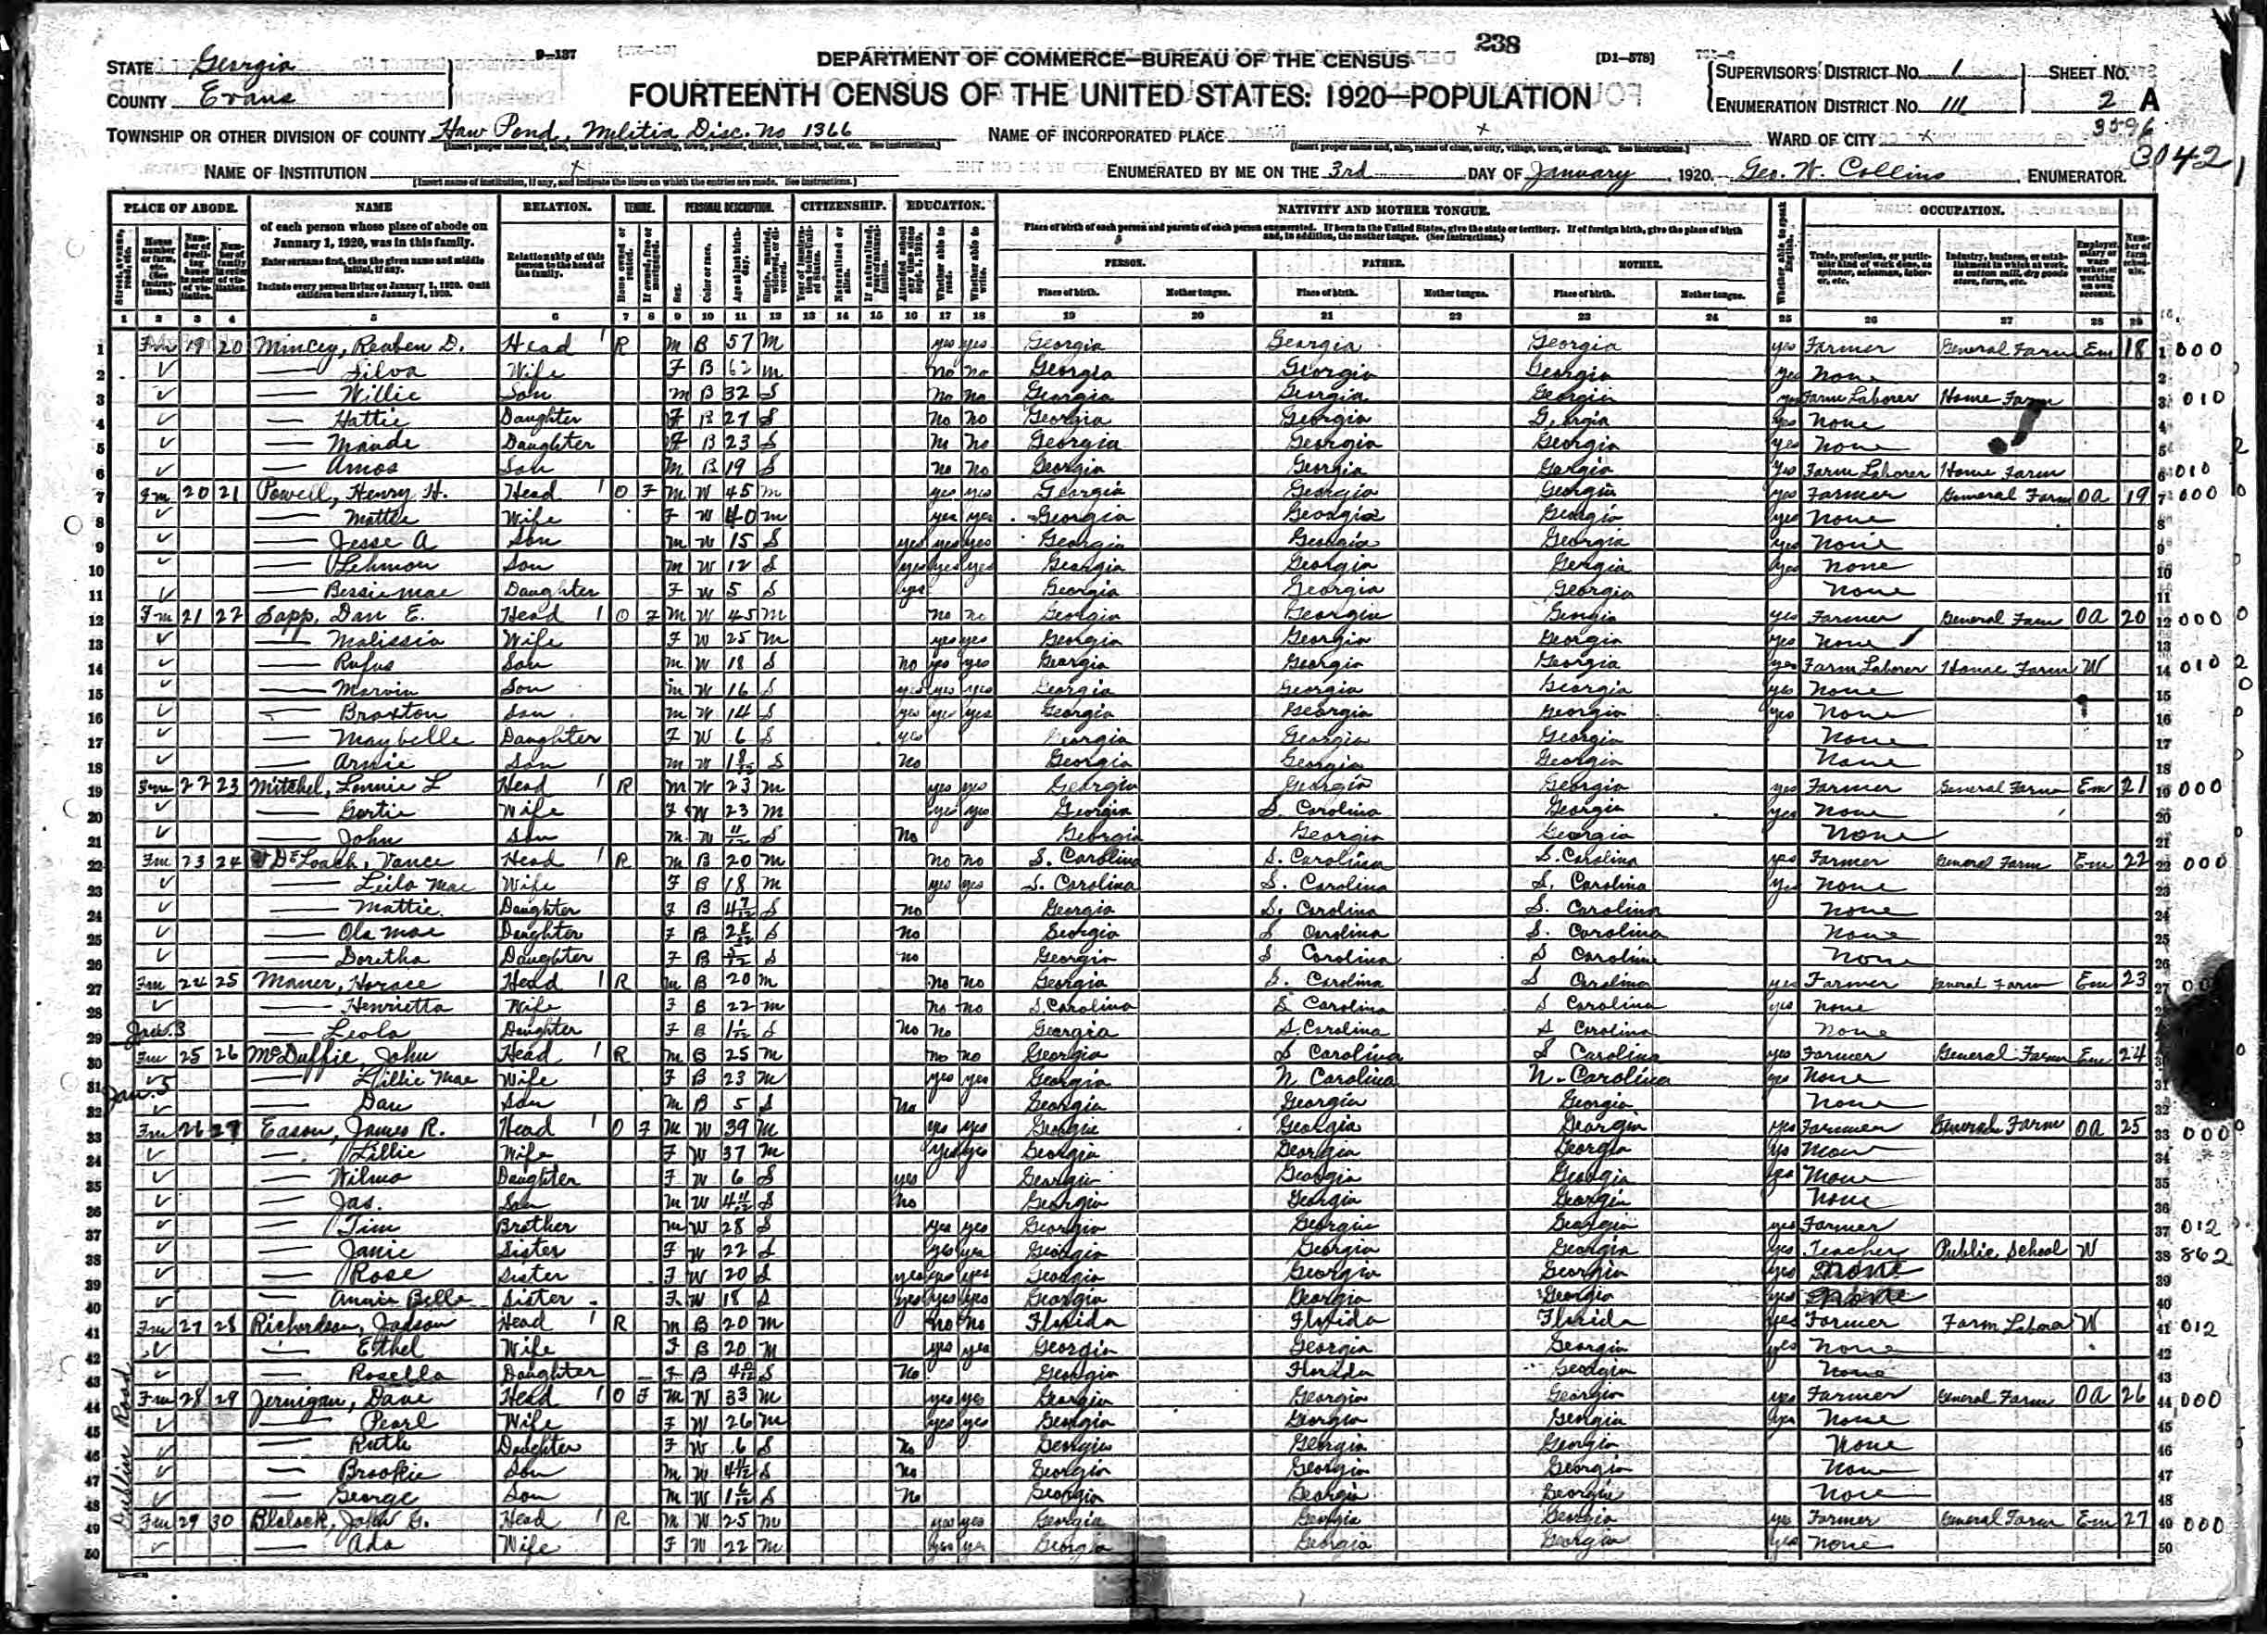 238
STATE Georgia 9-137 DEPARTMENT OF COMMERCE—BUREAU OF THE CENSUS [D1-578] SUPERVISOR'S DISTRICT No. 1 SHEET No.
COUNTY Evans FOURTEENTH CENSUS OF THE UNITED STATES: 1920—POPULATION ENUMERATION DISTRICT No. 111 2 A
3596
TOWNSHIP OR OTHER DIVISION OF COUNTY Haw Pond, Militia Disc. no 1366 NAME OF INCORPORATED PLACE x WARD OF CITY x
3042
NAME OF INSTITUTION x ENUMERATED BY ME ON THE 3rd DAY OF January, 1920. Geo. W. Collins, ENUMERATOR.
PLACE OF ABODE. NAME RELATION. TENURE. PERSONAL DESCRIPTION. CITIZENSHIP. EDUCATION. NATIVITY AND MOTHER TONGUE. OCCUPATION.
of each person whose place of abode on January 1, 1920, was in this family.
Enter surname first, then the given name and middle initial, if any.
Include every person living on January 1, 1920. Omit children born since January 1, 1920.
Relationship of this person to the head of the family.
Place of birth of each person and parents of each person enumerated. If born in the United States, give the state or territory. If of foreign birth, give the place of birth and, in addition, the mother tongue. (See Instructions.)
PERSON. FATHER. MOTHER.
Place of birth. Mother tongue. Place of birth. Mother tongue. Place of birth. Mother tongue.
1 2 3 4 5 6 7 8 9 10 11 12 13 14 15 16 17 18 19 20 21 22 23 24 25 26 27 28 29
1 Fm 19 20 Mincey, Reuben D. Head R M B 57 M yes yes Georgia Georgia Georgia yes Farmer General Farm Em 18 1 000
2 — Silva Wife F B 62 m no no Georgia Georgia Georgia yes None 2
3 — Willie Son m B 32 S No No Georgia Georgia Georgia yes Farm Laborer Home Farm 3 010
4 — Hattie Daughter F B 27 S No No Georgia Georgia Georgia yes None 4
5 — Maude Daughter F B 23 S No Georgia Georgia Georgia yes None 5
6 — Amos Son M B 19 S No No Georgia Georgia Georgia Yes Farm Laborer Home Farm 6 010
7 Fm 20 21 Powell, Henry H. Head O F M W 45 m yes yes Georgia Georgia Georgia yes Farmer General Farm OA 19 7 000
8 — Mattie Wife F W 40 m yes yes Georgia Georgia Georgia yes None 8
9 — Jesse A Son m W 15 S yes yes yes Georgia Georgia Georgia yes None 9
10 — Lehmon Son m W 12 S yes yes yes Georgia Georgia Georgia yes None 10
11 — Bessie mae Daughter F W 5 S yes Georgia Georgia Georgia None 11
12 Fm 21 22 Sapp, Dan E. Head O F M W 45 M No no Georgia Georgia Georgia yes Farmer General Farm OA 20 12 000
13 — Malissia Wife F W 25 m yes yes Georgia Georgia Georgia yes None 13
14 — Rufus Son m W 18 S No yes yes Georgia Georgia Georgia yes Farm Laborer Home Farm W 14 010
15 — Marvin Son m W 16 S yes yes yes Georgia Georgia Georgia yes None 15
16 — Braxton Son m W 14 S yes yes yes Georgia Georgia Georgia yes None 16
17 — Maybelle Daughter F W 6 S yes Georgia Georgia Georgia None 17
18 — Arnie Son m W S No Georgia Georgia Georgia None 18
19 Fm 22 23 Mitchel, Lonnie L Head R M W 23 m yes yes Georgia Georgia Georgia yes Farmer General Farm Em 21 19 000
20 — Gertie Wife F W 23 M yes yes Georgia S. Carolina Georgia yes None 20
21 — John Son m W 11/12 S No Georgia Georgia Georgia None 21
22 Fm 23 24 DeLoach, Vance Head R m B 20 m no no S. Carolina S. Carolina S. Carolina yes Farmer General Farm Em 22 22 000
23 — Leila Mae Wife F B 18 m yes yes S. Carolina S. Carolina S. Carolina yes None 23
24 — Mattie Daughter F B 4 7/12 S no Georgia S. Carolina S. Carolina None 24
25 — Ola Mae Daughter F B 2 8/12 S No Georgia S Carolina S. Carolina None 25
26 — Doretha Daughter F B S no Georgia S Carolina S Carolina None 26
27 Fm 24 25 Maner, Horace Head R m B 20 m No no Georgia S. Carolina S Carolina yes Farmer General Farm Em 23 27
28 — Henrietta Wife F B 22 m no no S. Carolina S Carolina S Carolina yes None 28
29 Jan. 3 — Leola Daughter F B 1 S No No Georgia S. Carolina S Carolina None
30 Fm 25 26 McDuffie, John Head R m B 25 m no no Georgia S Carolina S Carolina yes Farmer General Farm Em 24
31 Jan. 5 — Lillie Mae Wife F B 23 m yes yes Georgia N Carolina N. Carolina yes None 31
32 — Dan Son m B 5 S No Georgia Georgia Georgia None 32
33 Fm 26 27 Eason, James R. Head O F m W 39 M yes yes Georgia Georgia Georgia yes Farmer General Farm OA 25 33 000
34 — Lillie Wife F W 37 m yes yes Georgia Georgia Georgia yes None 34
35 — Wilma Daughter F W 6 S yes Georgia Georgia Georgia yes None 35
36 — Jas. Son m W S no Georgia Georgia Georgia None 36
37 — Tim Brother m W 28 S yes yes Georgia Georgia Georgia yes Farmer 37 012
38 — Janie Sister F W 22 S yes yes Georgia Georgia Georgia yes Teacher Public School W 38 862
39 — Rose Sister F W 20 S yes yes yes Georgia Georgia Georgia yes None 39
40 — Annie Belle Sister F W 18 S yes yes yes Georgia Georgia Georgia yes None 40
41 Fm 27 28 Richardson, Judson Head R m B 20 m no no Florida Florida Florida yes Farmer Farm Labora W 41 012
42 — Ethel Wife F B 20 m yes yes Georgia Georgia Georgia yes None 42
43 — Rosella Daughter F B S No Georgia Florida Georgia None 43
44 Fm 28 29 Jernigan, Dave Head O F m W 33 m yes yes Georgia Georgia Georgia yes Farmer General Farm OA 26 44 000
45 — Pearl Wife F W 26 m yes yes Georgia Georgia Georgia yes None 45
46 — Ruth Daughter F W 6 S No Georgia Georgia Georgia None 46
47 — Brookie Son m W S No Georgia Georgia Georgia None 47
48 — George Son m W S No Georgia Georgia Georgia None 48
49 Fm 29 30 Blalock, John G. Head R m W 25 m yes yes Georgia Georgia Georgia yes Farmer General Farm Em 27 49 000
50 — Ada Wife F W 22 m yes yes Georgia Georgia Georgia yes None 50
Dublin Road